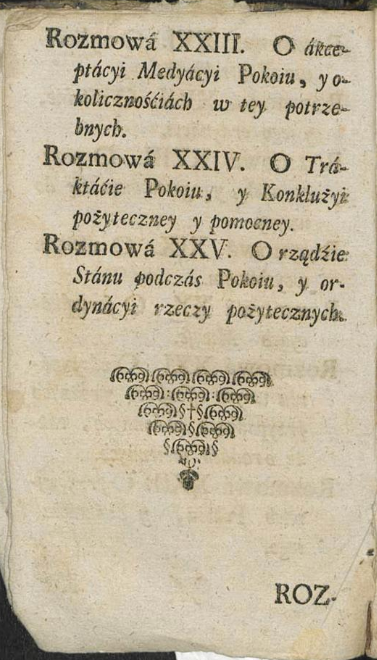 Rozmowá XXIII. O ákce-
ptácyi Medyácyi Pokoiu, y o-
kolicznośćiách w tey potrze-
bnych.
Rozmowá XXIV. O Trá-
ktáćie Pokoiu, y Konklużyi
pożyteczney y pomocney.
Rozmowá XXV. O rządźie
Stánu podczás Pokoiu, y or-
dynácyi rzeczy pożytecznych.
ROZ-